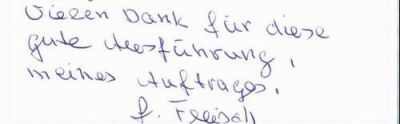 Vielen Dank für diese
gute Ausführung,
meines Auftrages.
f. Fleisch